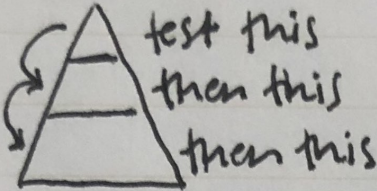 test this
then this
then this